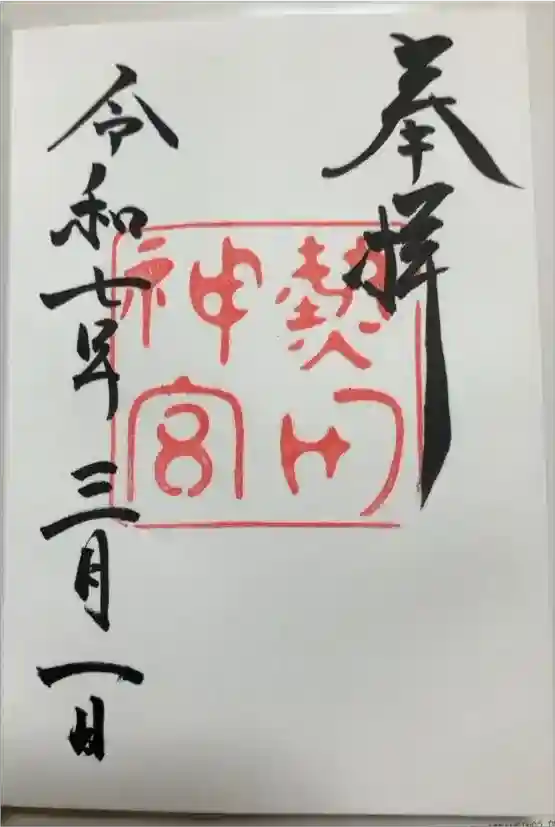 奉拝
熱田
神宮
令和七年 三月 一日